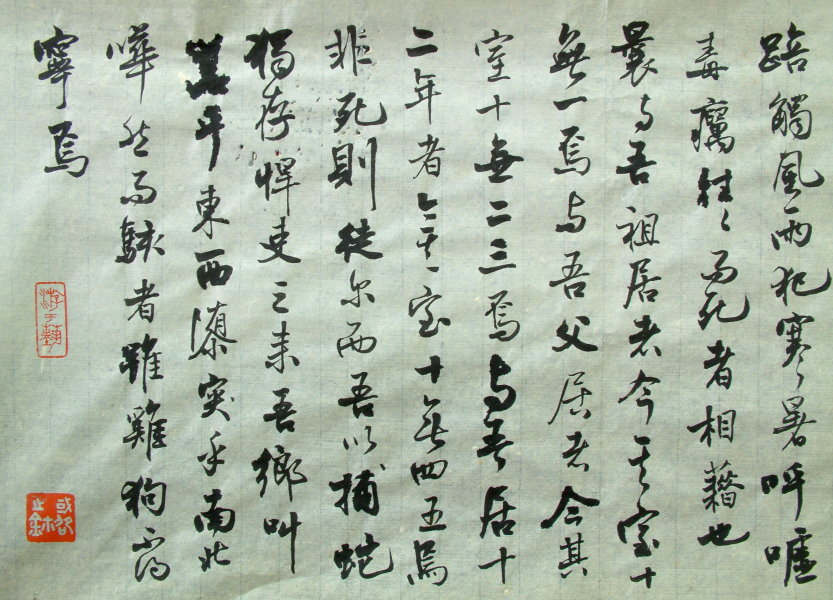 踣觸風雨犯寒暑呼噓
毒癘往〻而死者相藉也
曩与吾祖居者今其室十
無一焉与吾父居者今其
室十無二三焉与吾居十
二年者今其室十無四五焉
非死則徙尔而吾以捕蛇
獨存悍吏之来吾鄉叫
囂乎東西隳突乎南北
嘩然而駭者雖雞狗不得
寧焉
游于藝